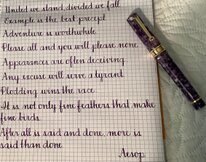 United we stand, divided we fall.
Example is the best precept.
Adventure is worthwhile.
Please all and you will please none.
Appearances are often deceiving.
Any excuse will serve a tyrant.
Plodding wins the race.
It is not only fine feathers that make
fine birds.
After all is said and done, more is
said than done.
Aesop